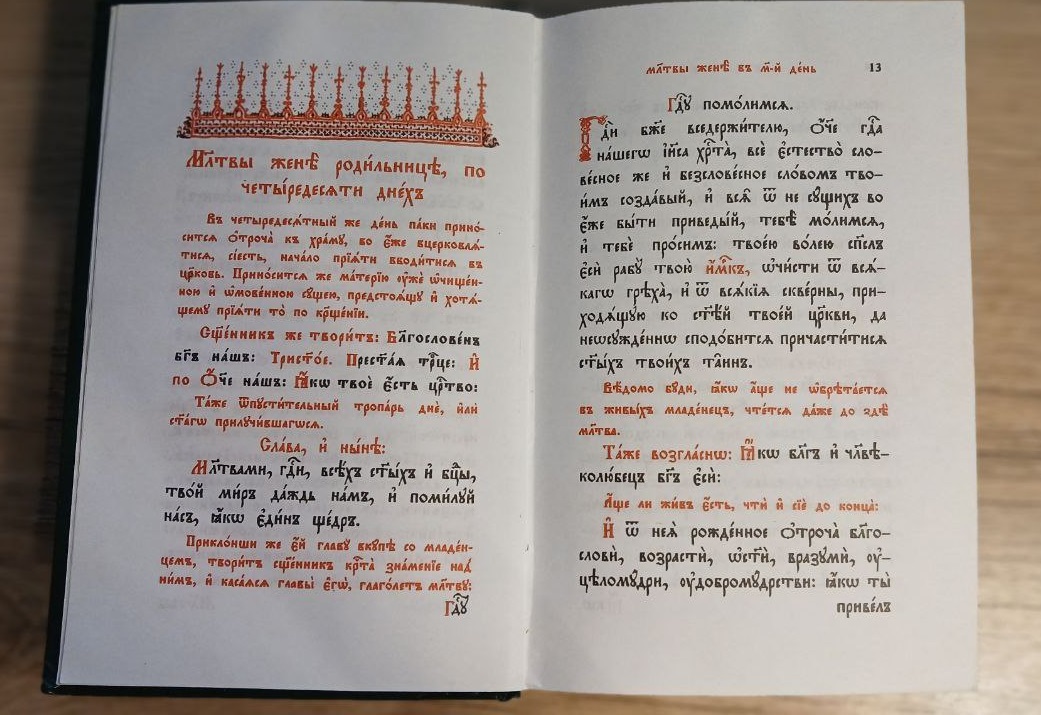 Мл҃твы женѣ̀ роди́льницѣ, по
четы́редесѧти дне́хъ
Въ четыредесѧ́тный же де́нь па́ки прино́-
ситсѧ ѻ҆троча̀ къ хра́му, во є҆́же вцерковлѧ́-
тисѧ, сїе́сть, нача́ло прїѧ́ти вводи́тисѧ въ
цр҃ковь. Прино́ситсѧ же ма́терїю ᲂу҆жѐ ѡ҆чище́н-
ною и҆ ѡ҆мове́нною су́щею, предстоѧ́щу и҆ хотѧ́-
щему прїѧ́ти то̀ по кр҃ще́нїи.
Сщ҃е́нникъ же твори́тъ: Бл҃гослове́нъ
бг҃ъ на́шъ: Трист҃о́е. Прест҃а́ѧ тр҃це: И҆
по Ѻ҆́ч҃е на́шъ: Ꙗ҆́кѡ твоѐ є҆́сть цр҃тво:
Та́же ѿпусти́тельный тропа́рь днѐ, и҆лѝ
ст҃а́гѡ прилучи́вшагѡсѧ.
Сла́ва, и҆ ны́нѣ:
Мл҃твами, гдⷭ҇и, всѣ́хъ ст҃ы́хъ и҆ бцⷣы,
тво́й ми́ръ да́ждь на́мъ, и҆ поми́луй
на́съ, ꙗ҆́кѡ є҆ди́нъ ще́дръ.
Прикло́нши же є҆́й главу̀ вку́пѣ со младе́н-
цемъ, твори́тъ сщ҃е́нникъ крⷭ҇та̀ зна́менїе над̾
ни́мъ, и҆ каса́ѧсѧ главы̀ є҆гѡ̀, глаго́летъ мл҃тву:
Гдⷭ҇у
мл҃твы женѣ̀ въ м҃-й де́нь 13
Гдⷭ҇у помо́лимсѧ.
Гдⷭ҇и бж҃е вседержи́телю, ѻ҆́ч҃е гдⷭ҇а
на́шегѡ і҆и҃са хрⷭ҇та̀, всѐ є҆стество̀ сло-
ве́сное же и҆ безслове́сное сло́вомъ тво-
и́мъ созда́вый, и҆ всѧ̑ ѿ не су́щихъ во
є҆́же бы́ти приведы́й, тебѣ̀ мо́лимсѧ,
и҆ тебѐ про́симъ: твое́ю во́лею сп҃слъ
є҆сѝ рабу̀ твою̀ и҆́м҃къ, ѡ҆чи́сти ѿ всѧ́-
кагѡ грѣха̀, и҆ ѿ всѧ́кїѧ скве́рны, при-
ходѧ́щую ко ст҃ѣ́й твое́й цр҃кви, да
неѡсужде́ннѡ сподо́битсѧ причасти́тисѧ
ст҃ы́хъ твои́хъ та̑инъ.
Вѣ́домо бу́ди, ꙗ҆́кѡ а҆́ще не ѡ҆брѣта́етсѧ
въ живы́хъ младе́нецъ, чте́тсѧ да́же до здѣ̀
мл҃тва.
Та́же возгла́снѡ: Ꙗ҆́кѡ бл҃гъ и҆ чл҃вѣ-
колю́бецъ бг҃ъ є҆сѝ:
А҆́ще ли жи́въ є҆́сть, чтѝ и҆ сїѐ до конца̀:
И҆ ѿ неѧ̀ рожде́нное ѻ҆троча̀ бл҃го-
словѝ, возрастѝ, ѡ҆ст҃ѝ, вразумѝ, ᲂу҆-
цѣлому́дри, ᲂу҆доброму́дрстви: ꙗ҆́кѡ ты̀
приве́лъ